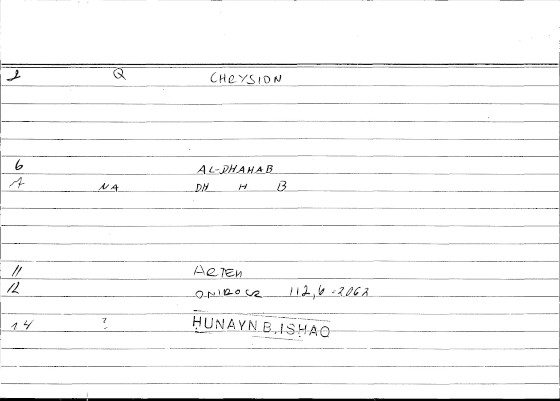 2 Q CHRYSION
6 AL-DHAHAB
7 NA DH H B
11 ARTEM
12 ONIROCR 112,6-2062
14 ? HUNAYN B. ISHAQ